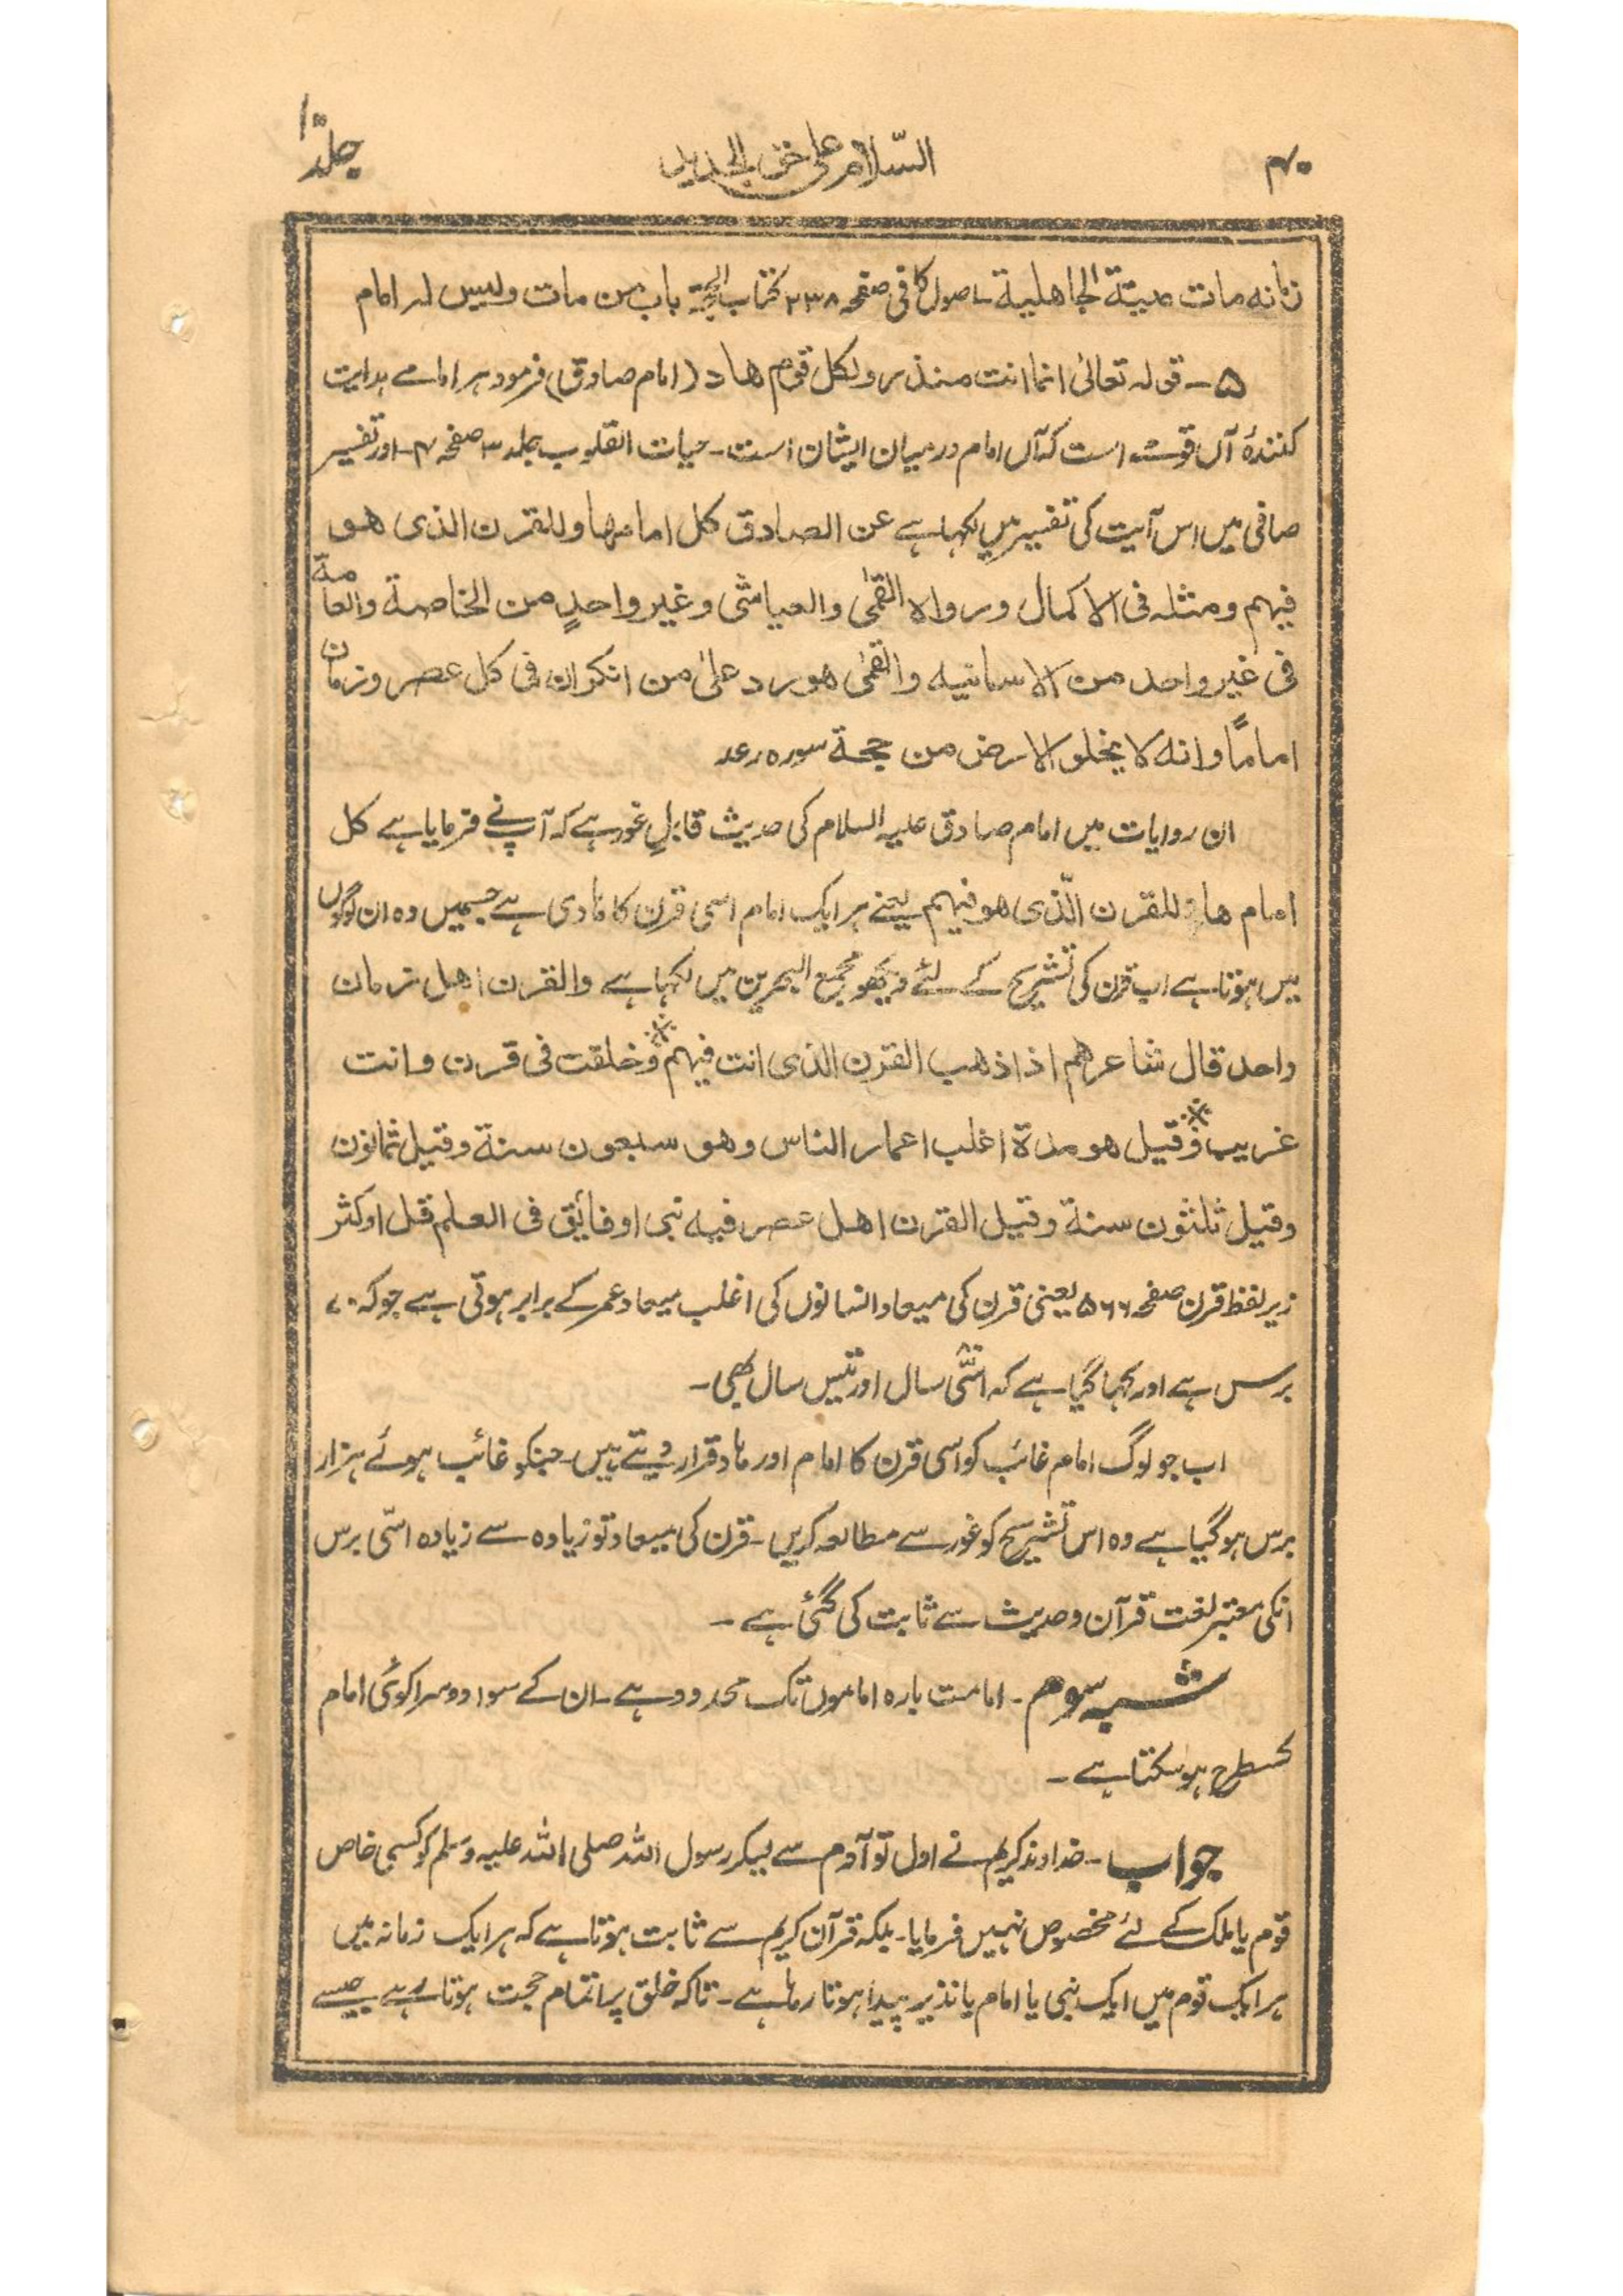 ۴۰ السّلام علیٰ خضر الجدید جلد ۱
زمانہ مات میتة الجاهلیة ۔ اصول کافی صفحہ ۲۳۸ کتاب الحجۃ باب من مات ولیس لہ امام
۵ ۔ قولہ تعالیٰ انما انت منذر ولکل قوم ھاد (امام صادق) فرمود ہر امامے ہدایت
کنندۂ آں قومست است کہ آں امام درمیان ایشان است ۔ حیات القلوب جلد ۳ صفحہ ۴ ۔ اور تفسیر
صافی میں اس آیت کی تفسیر میں لکہا ہے عن الصادق کل امام ھاد للقرن الذی ھو
فیہم ومثلہ فی الاکمال ورواہ القمی والعیاشی وغیر واحدٍ من الخاصة والعامّة
فی غیر واحد من الاسانیہ والقمی ھو رد علیٰ من انکر ان فی کل عصر وزمان
اماماً وانہ لا یخلو الارض من حجة سورہ رعد
ان روایات میں امام صادق علیہ السلام کی حدیث قابلِ غور ہے کہ آپ نے فرمایا ہے کل
امام ھاد للقرن الّذی ھو فیہم یعنے ہر ایک امام اسی قرن کا ہادی ہے جسمیں وہ ان لوگوں
میں ہوتا ہے اب قرن کی تشریح کے لئے دیکھو مجمع البحرین میں لکہا ہے والقرن اھل زمان
واحد قال شاعرھم اذا ذھب القرن الذی انت فیہم ؞ وخلقت فی قرن وانت
غریب ؞ وقیل ھو مدة اغلب اعمار الناس وھو سبعون سنة وقیل ثمانون
وقیل ثلثون سنة وقیل القرن اھل عصر فیہ نبی او فائق فی العلم قل او کثر
زیر لفظ قرن صفحہ ۵۶۶ یعنی قرن کی میعاد انسانوں کی اغلب میعاد عمر کے برابر ہوتی ہے جو کہ ۷۰
برس ہے اور کہا گیا ہے کہ اسّی سال اور تیس سال بھی ۔
اب جو لوگ امام غائب کو اسی قرن کا امام اور ہاد قرار دیتے ہیں ۔ جنکو غائب ہوئے ہزار
برس ہو گیا ہے وہ اس تشریح کو غور سے مطالعہ کریں ۔ قرن کی میعاد تو زیادہ سے زیادہ اسّی برس
انکی معتبر لغت قرآن وحدیث سے ثابت کی گئی ہے ۔
شبہ سوم ۔ امامت بارہ اماموں تک محدود ہے ۔ ان کے سوا دوسرا کوئی امام
کسطرح ہو سکتا ہے ۔
جواب ۔ خداوند کریم نے اول تو آدم سے لیکر رسول اللہ صلی اللہ علیہ وسلم کو کسی خاص
قوم یا ملک کے لئے مخصوص نہیں فرمایا ۔ بلکہ قرآن کریم سے ثابت ہوتا ہے کہ ہر ایک زمانہ میں
ہر ایک قوم میں ایک نبی یا امام یا نذیر پیدا ہوتا رہا ہے ۔ تاکہ خلق پر اتمام حجت ہوتا رہے جیسے